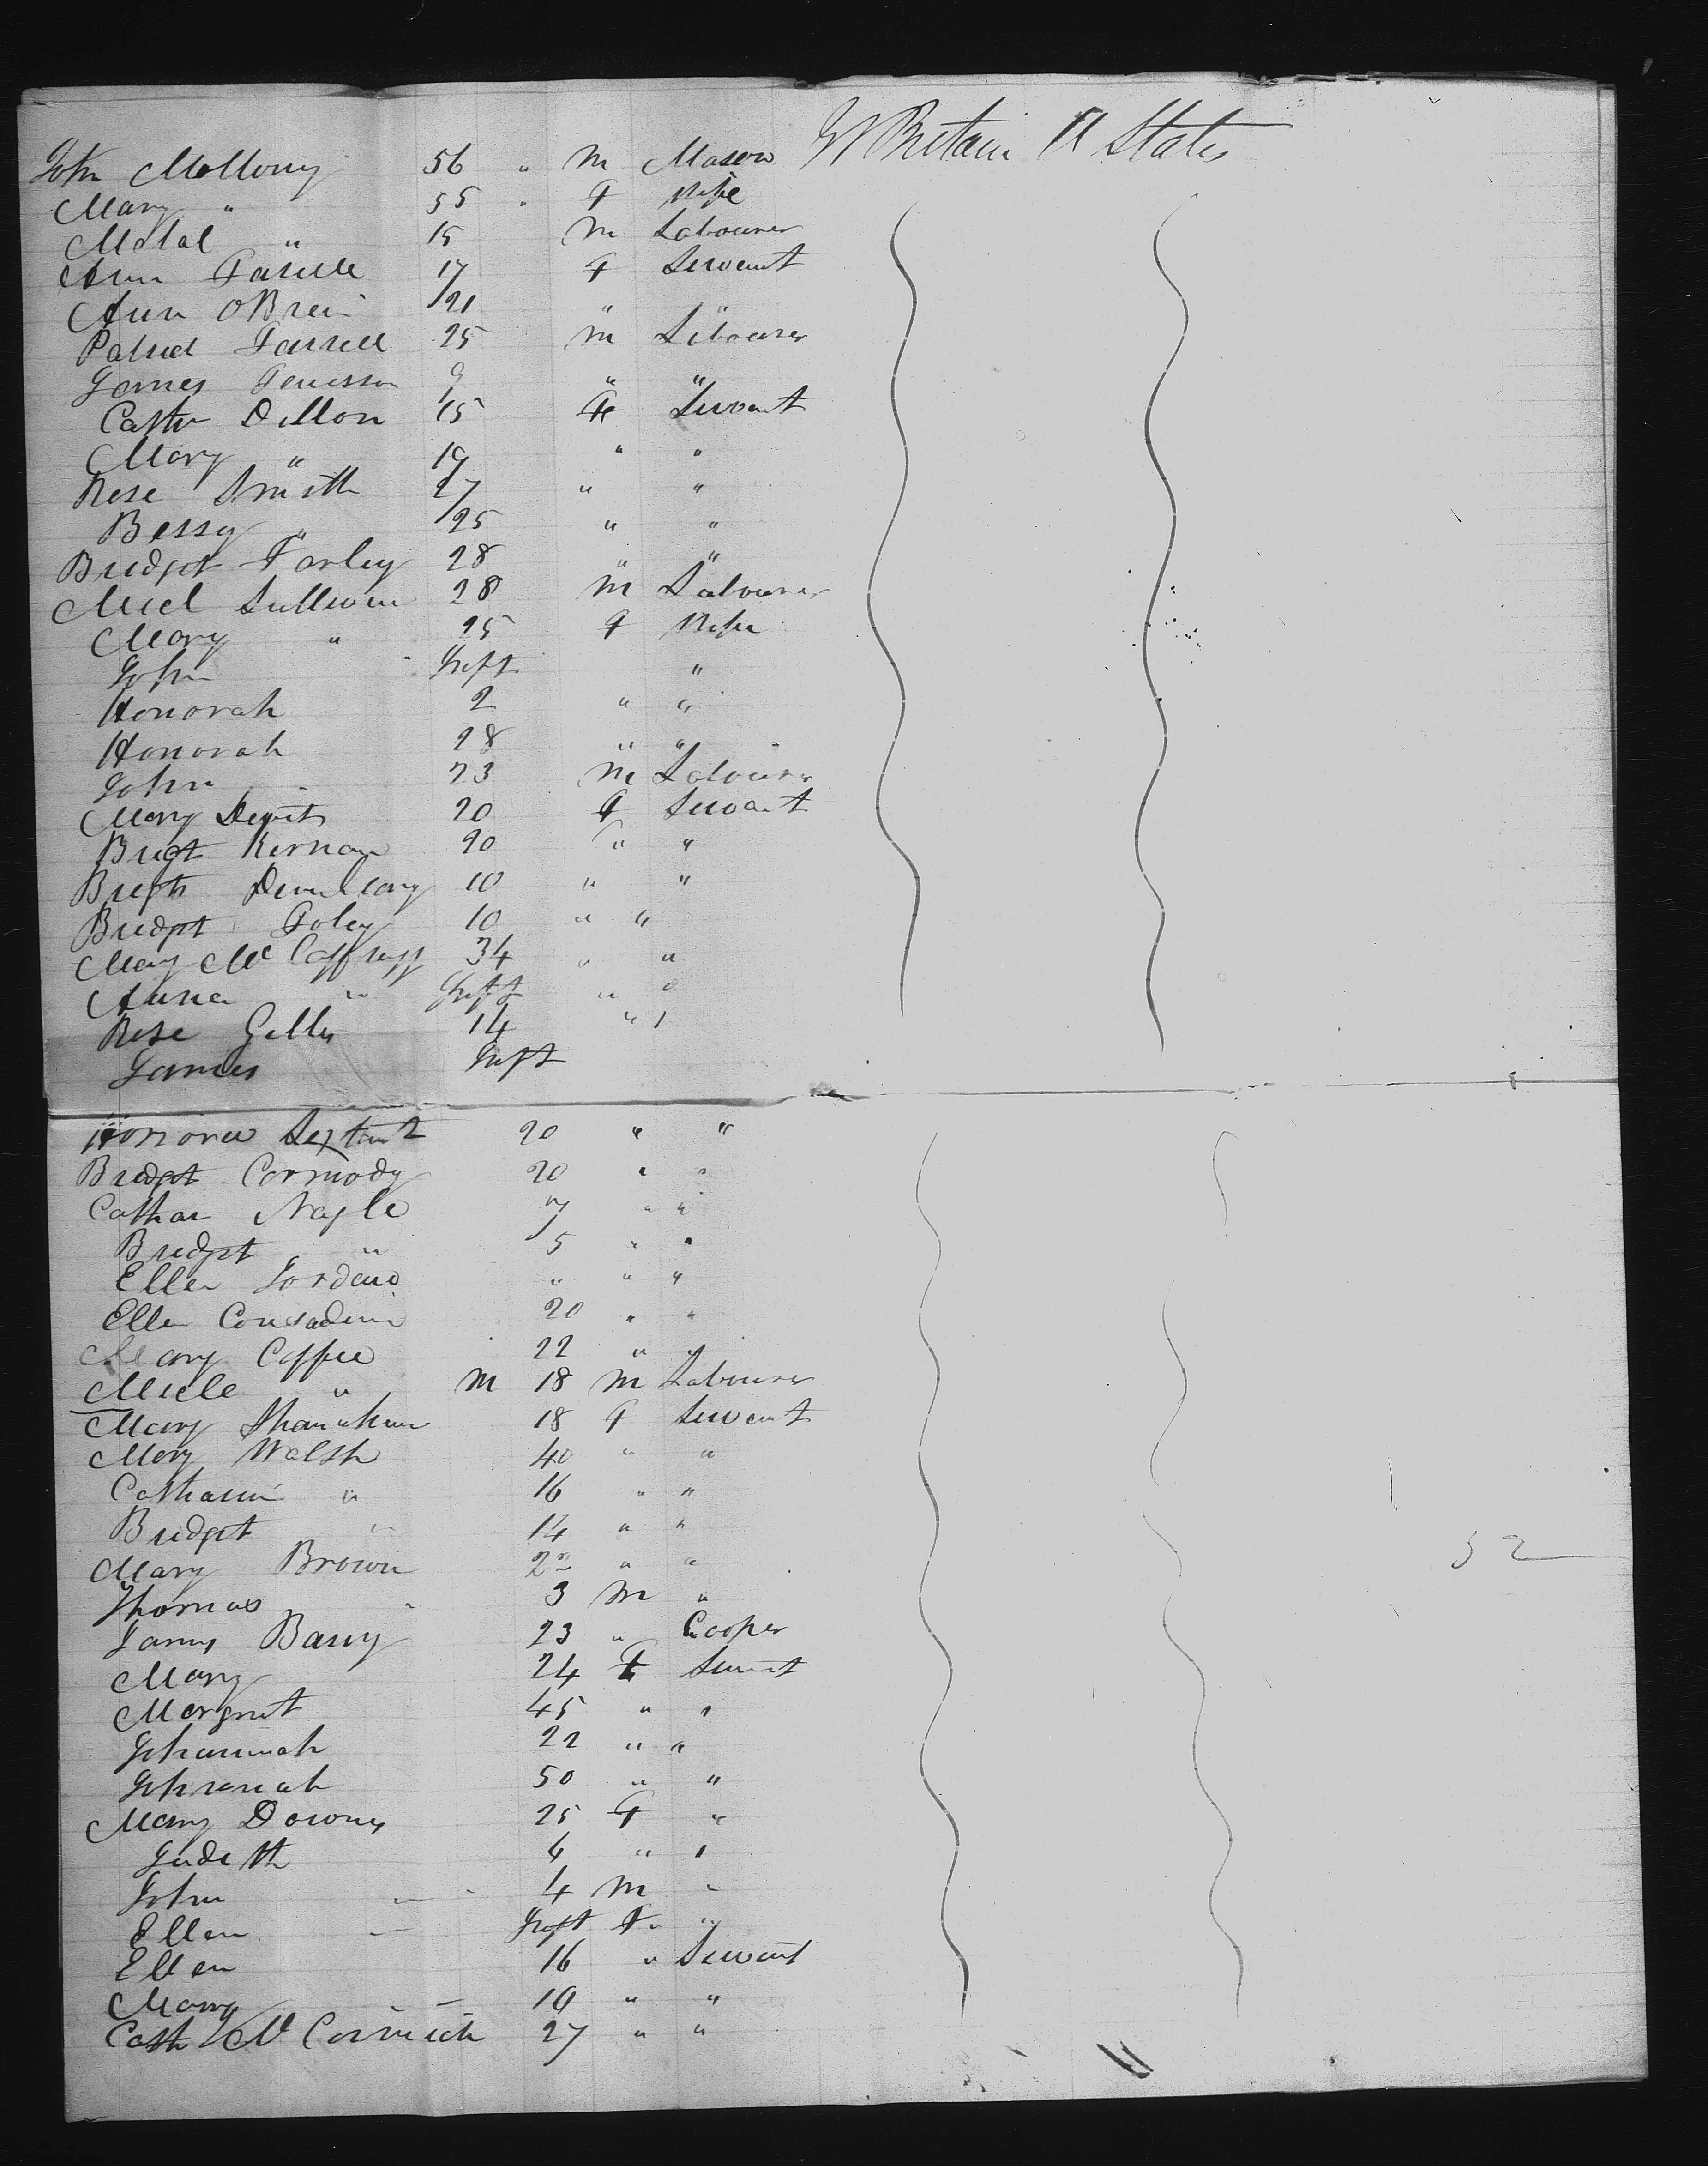 John Mollony 56 " M Mason Gt Britain U States
Mary " 55 " F Wife
Michl " 15 M Labourer
Ann Farrell 17 F Servant
Ann OBrein 21 "
Patrick Farrell 25 M Labourer
James 9 " "
Cathr Dillon 15 F Servant
Mary " 19 " "
Rose Smith 27 " "
Bessy " 25 " "
Bridget Farley 28 " "
Micl Sullivan 28 M Labourer
Mary " 25 F Wife
John Inft "
Honorah 2 " "
Honorah 28 " "
John 23 M Labourer
Mary 20 F Servant
Bridgt Kernan 20 " "
Bridgt 10 " "
Bridget Foley 10 " "
Mary McCaffrey 34 " "
Anna " Inft " "
Rose 14 "
James Inft
Honora 20 " "
Bridget Carmody 20 " "
Cathar Nagle 7 " "
Bridget " 5 " "
Ellen Jordan " " "
Ellen Considine 20 " "
Mary Coffee 22 " "
Michl " M 18 M Labourer
Mary Shanahan 18 F Servant
Mary Walsh 40 " "
Catharin " 16 " "
Bridget " 14 " "
Mary Brown 22 " "
Thomas " 3 M "
James Barry 23 " Cooper
Mary 24 F Servant
Margret 45 " "
Johannah 22 " "
Johanah 50 " "
Mary Downy 25 F "
Judith 6 " "
John 4 M "
Ellen Inft F "
Ellen 16 " Servant
Mary 19 " "
Cath McCormick 27 " "
52